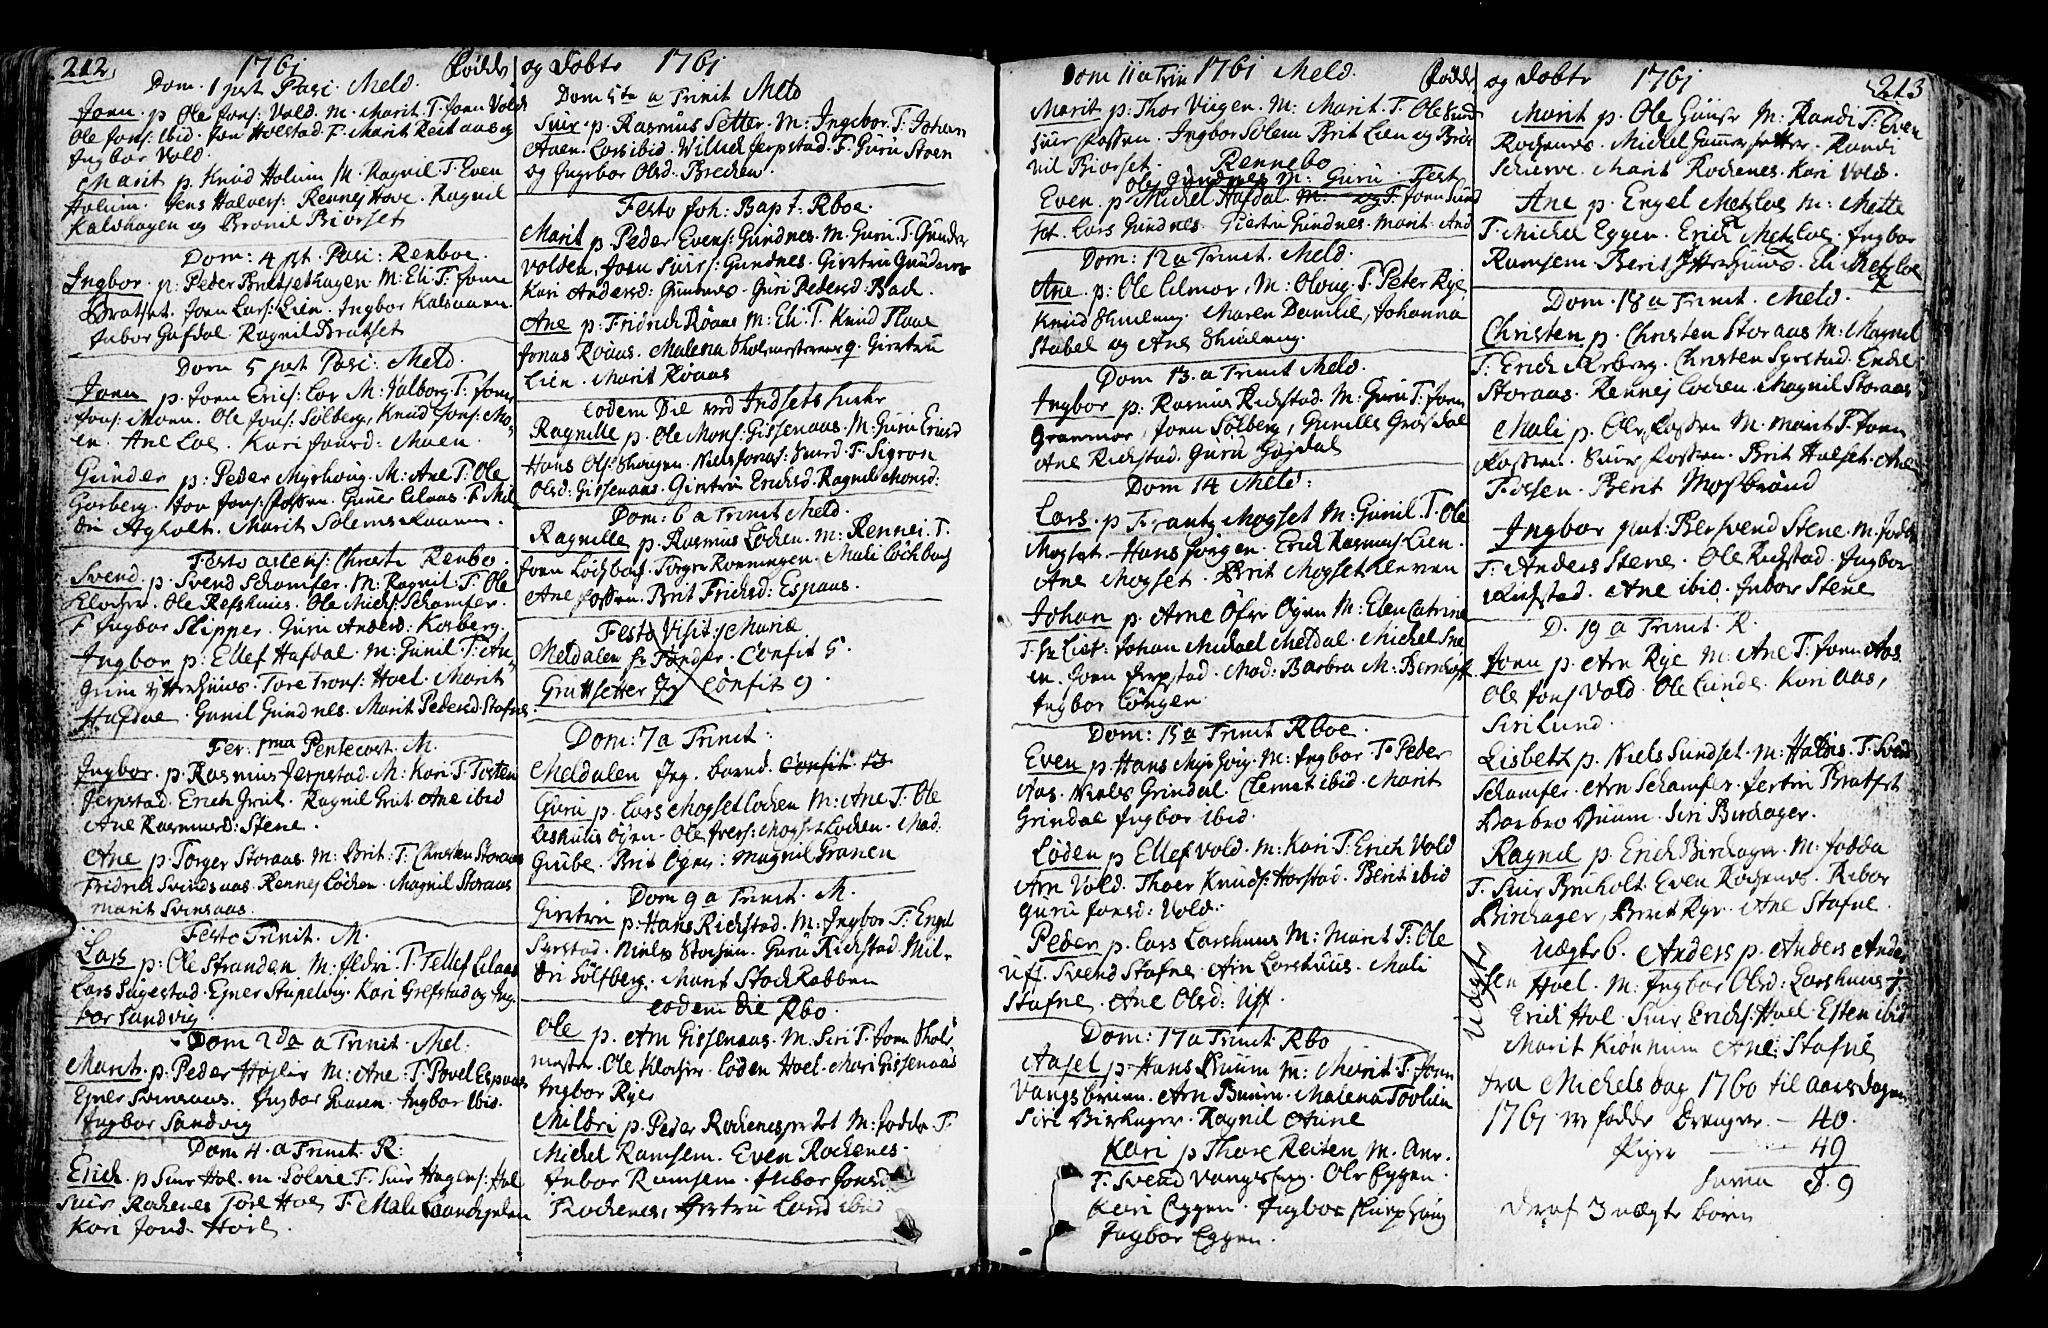 212. 1761 Fødde og Døbte 1761
Dom. 1 post Pasc: Meld.
Joen. p Ole Jons: Vold. M. Marit. T. Joen Vold
Ole Jons: ibid. Jon Holstad. F. Marit Reitaas og
Ingbor Vold.
Marit p. Knud Holum M. Ragnil T. Even
Holum. Jens Halvers: Rennej Hove. Ragnil
Kalshagen og Bronil Biørset
Dom: 4 pt. Pasc: Renboe.
Ingbor. p: Peder Bratsethagen M: Eli T. Joen
Bratset. Joen Lars: Lien. Ingbor Kalsaaen.
Inbor Hafdal Ragnil Bratset
Dom 5 post Pasc: Meld.
Joen p. Joen Erics: Loe M: Valborg T: Joen
Jons: Moen. Ole Jons: Solberg, Knud Jons: Mo-
en. Ane Loe. Kari Jonsd: Moen.
Gunder p: Peder Myrhoug M: Ane T. Ole
Gorberg. Jon Jons: Fossen. Guner Lilaas F. Mil-
dri Aspholt. Marit Solemskaaren.
Festo Ascens: Christi Renbo.
Svend. p. Svend Schamfer. M: Ragnil: T: Ole
Klocher. Ole Refshuus. Ole Michs: Schamfer.
F Ingbor Skipper. Guru Andersd: Kosberg.
Ingbor p: Ellef Hafdal. M: Gunil. T: An-
grim Ytterhuus. Tore Trons: Hoel. Marit
Hafdal. Gunil Gundnes. Marit Pedersd: Stafne
Fer: 1ma Pentecost. M.
Ingbor. p. Rasmus Jerpstad. M: Kari T. Tosten
Jerpstad. Erich Grut. Ragnil Grut. Ane ibid
Ane Rasmusd: Stene.
Ane p Torger Storaas. M: Brit: T: Christen Storaas
Fridrich Svindsaas. Rennej Løchen. Magnil Storaas
Marit Svinsaas.
Festo Trinit. M.
Lars p: Ole Stranden M: Jldri. T. Tellef Lilaas
Lars Sugestad. Ejner Stapelvig. Kari Grefstad og Ing-
bor Sandvig
Dom 2da a Trinit. Mel.
Marit. p: Peder Højlie M: Ane: T Povel Espaas
Ejner Svinsaas. Ingbor Haaren. Ingbor ibid.
Ingbor Sandvig
Dom 4. a Trinit. R:
Erich. p Siur Hol. m. Solvie T. Siur Hagens: Hol
Siur Rochenes Tore Hoel T. Mali Laangelen
Kari Jonsd. Hoel.
Dom 5te a Trinit Meld
Siur. p. Rasmus Setter. M: Ingebor. T. Johan
Aven. Lars ibid. Willich Jerpstad. F. Guru Støen
og Ingebor Olsd: Brechen.
Festo Joh: Bapt. Rboe.
Marit p: Peder Evens: Gundnes. M. Guru T. Gunder
Volden, Joen Siurs: Gundnes. Giertru Gundnes
Kari Andersd: Gunnes. Guri Pedersd: Bach.
Ane p: Fridrich Røaas M: Eli. T. Knud Flaae
Jonas Røaas. Malena Skolmesterens q. Giertru
Lien. Marit Røaas
Eodem Die ved Indsets Kirke
Ragnille p. Ole Mons: Gissenaas. M. Guru Ericsd
Hans Ols: Haugen. Niels Jonas: Smed. F. Sigron
Olsd: Gissenaas. Giertru Erichsd. Ragnil Monsd:
Dom: 6 a Trinit Meld.
Ragnille p. Rasmus Løchen. M: Rennei T.
Joen Lochsborg. Torger Rønningen. Mali Løchborg
Ane Fossen. Brit Frichsd: Espaas.
Festo Visit: Mariæ
Meldalen Hr Tønder. Confit 5.
Grutsetter Jg Confit 9.
Dom: 7 a Trinit:
Meldalen Jeg. barnd. Confit: 13
Guru p. Lars Mogset Lochen M: Ane T. Ole
Leshulis Øyen. Ole Ivers: Mogset Løchen. Mad:
Grube. Brit Oyen: Magnil Granen
Dom 9 a Trinit. M.
Giertru p. Hans Richstad. M: Ingbor T. Engel
Syrstad. Niels Stochen. Guru Richstad. Mil-
dri Sølberg. Marit Stochbobben
Eodem die Rbo.
Ole p. Arn Gissenaas. M. Siri T. Joen Skole
mester. Ole Klocher. Løden Hoel. Mari Gissenaas
Ingbor Rye
Mildri p. Peder Rochenes M: Jodda. T.
Michel Ramsem. Even Rochenes.
Inbor Ramsem. Inbor Jonsd
Rochenes, Giertru Lund ibid
Dom 11 a Trin 1761 Meld. Fødde og Døbte 1761 213
Marit p: Thor Viigen. M: Marit. T. Ole Lund
Siur Fossen. Ingbor Solem Brit Lien og Bro-
nil Biørset. Rennebo
Ole Gundnes M: Guru. Fest
Even. p Michel Hafdal. M: og F. Joen Lund
set. Lars Gundnes. Giertru Gundnes. Marit. And
Dom: 12 a Trinit. Meld.
Ane. p: Ole Elmor, M: Olvig. T. Peter Rye,
Knud Schulung. Maren Damlie, Johanna
Stabel og Ane Schulung.
Dom 13. a Trinit Meld.
Ingbor p: Rasmus Richstad. M: Guru T: Joen
Granmoe, Joen Solberg, Gunille Grosdal
Ane Richstad. Guru Gojdal
Dom 14 Meld:
Lars. p Frantz Mogset M: Gunil. T. Ole
Mogset. Hans Jørgen. Erich Rasmus Lien.
Ane Mogset. Brit Mogset Kleven
Johan p. Arne Øfre Oyen M: Elen Catrine
T. Hr Lief: Johan Michael Meldal. Michel Sne
en. Joen Jerpstad. Mad: Barbra M: Bernhoft
Ingbor Løngen
Dom: 15 a Trinit Rboe.
Even p Hans Myrhoug. M: Ingbor. T. Peder
Aas. Niels Grindal. Clemet ibid. Marit
Grindal Ingbor ibid.
Løden p Ellef Vold. M: Kari T. Erich Vold
Arn Vold. Thoer Knuds: Horstad. Berit ibid
Guru Jonsd: Vold.
Peder p. Lars Larshuus M: Marit T: Ole
Uf. Svend Stafne. Arn Larshuus. Mali
Stafne. Ane Olsd: Uff.
Dom: 17 a Trinit. Rbo
Aasel p Hans Buum M: Marit. T. Joen
Vangsbruun. Arn Buum. Malena Tovlien
Siri Birchager. Ragnil Aune
Kari p Thore Reiten M. Ane.
T. Svend Vangsberg. Ole Eggen.
Kari Eggen. Ingbor Kurphoug
Ingbor Eggen.
Marit p. Ole Gunner M: Randi T. Even
Rochenes. Michel Gunnersetter. Randi
Scherve. Marit Rochenes. Kari Vold.
Ane p. Engel Metzloe M: Mette
T. Michel Eggen. Erich Metzloe. Ingbor
Ramsem Berit Ytterhuus. Eli Metzloe
Dom. 18 a Trinit. Meld.
Christen p. Christen Storaas M: Magnil
T: Erich Aasberg. Christen Syrstad. Endel
Storaas. Rennej Lochen. Magnil Storaas
Mali p. Ole Fossen M. Marit T. Joen
Fossen. Siur Fossen. Brit Holset. Ane
Fossen. Berit Mosbrønd
Ingbor pat: Bersvend Stene. M. Jodda
T: Anders Stene. Ole Richstad. Ingbor
Richstad. Ane ibid. Inbor Stene
D. 19 a Trinit. R.
Joen p. Arn Rye M. Ane T. Joen Aas.
Ole Jons Vold. Ole Lunde. Kari Aas,
Siri Lund.
Lisbeth p. Niels Lundset. M: Halvis. T. Svend
Schamfer. Arn Schamfer. Jertru Bratset
Barbro Buum. Siri Birchager.
Ragnil p. Erich Birchager. M. Jodda
T. Siur Bruholt. Even Rochenes. Rebor
Birchager, Berit Rye. Ane Stafne.
Uægte Uægte b. Anders p. Anders Ander
sen Hoel. M: Ingbor Olsd: Larshuus T.
Erich Hol. Siur Erichs: Hoel. Esten ibid
Marit Kiønnum Ane Stafne
fra Michelsdag 1760 til aarsdagen
1761 er fødde Drenger — 40.
Piger — 49
Suma 89
Deraf 3 uægte børn